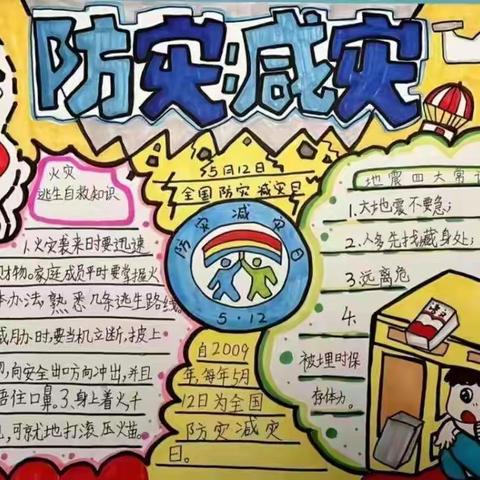 防灾减灾
火灾
逃生自救知识
1.火灾袭来时要迅速
财物。家庭成员平时要掌握火
办法,熟悉几条逃生路线。
威胁时,要当机立断,披上
,向安全出口方向冲出,并且
捂住口鼻。3.身上着火千
,可就地打滚压火苗。
5月12日
全国防灾减灾日
防灾减灾日
5·12
自2009
年,每年5月
12日为全国
防灾减灾
日。
地震四大常
1.大地震不要急;
2.人多先找藏身处;
3.远离危
4.
被埋时保
存体力。